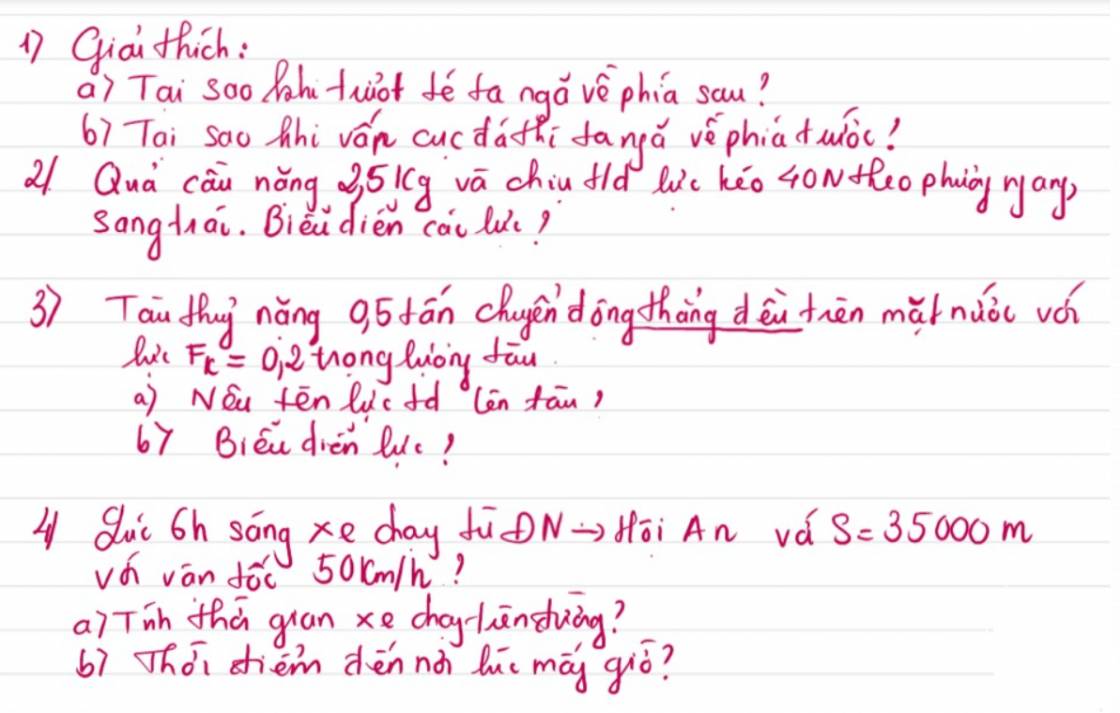 1) Giải thích:
a) Tại sao khi trượt té ta ngã về phía sau?
b) Tại sao khi vấp cục đá thì ta ngã về phía trước?
2/ Quả cầu nặng 2,5 Kg và chịu t/d lực kéo 40N theo phương ngang,
sang trái. Biểu diễn các lực?
3) Tàu thuỷ nặng 0,5 tấn chuyển động thẳng đều trên mặt nước với
lực Fk = 0,2 trọng lượng tàu
a) Nêu tên lực td lên tàu?
b) Biểu diễn lực?
4/ Lúc 6h sáng xe chạy từ ĐN → Hội An và S = 35000 m
với vận tốc 50Km/h?
a) Tính thời gian xe chạy trên đường?
b) Thời điểm đến nơi lúc mấy giờ?